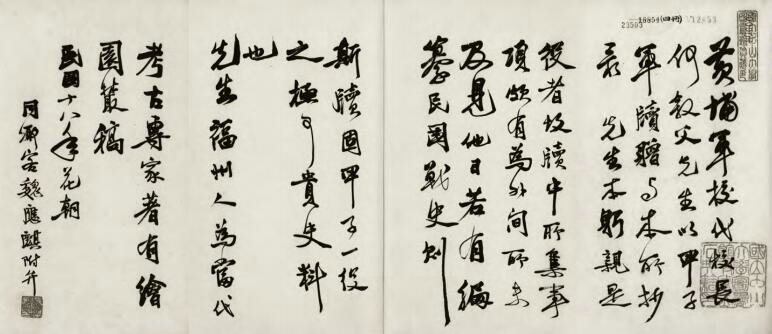 黃埔軍校代校長
何敘父先生以甲子
軍牘贈与本所抄
录 先生本躬親是
役者故牘中所集事
項頗有為外间所未
及見他日若有編
纂民國戰史則
斯牘固甲子一役
之極可貴史料
也
先生福州人為當代
考古專家著有繪
園叢稿
民國十八年花朝
同鄉魏應麒附弁
23503